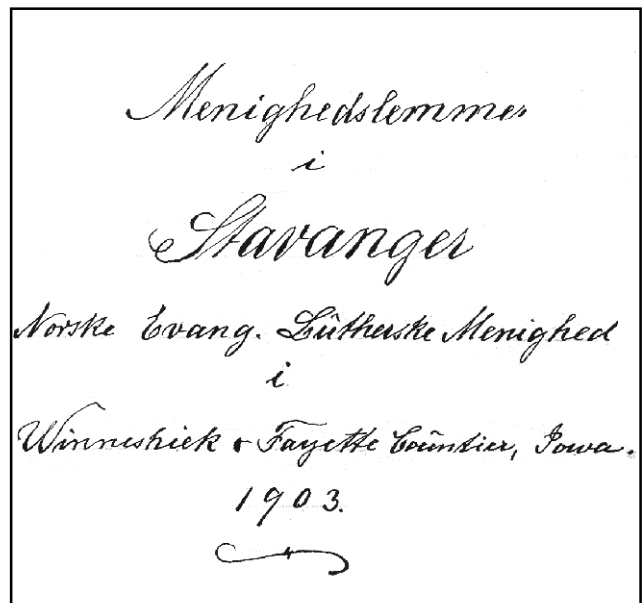 Menighedslemmer
i
Stavanger
Norske Evang. Lütherske Menighed
i
Winneshiek & Fayette Coüntier, Iowa.
1903.